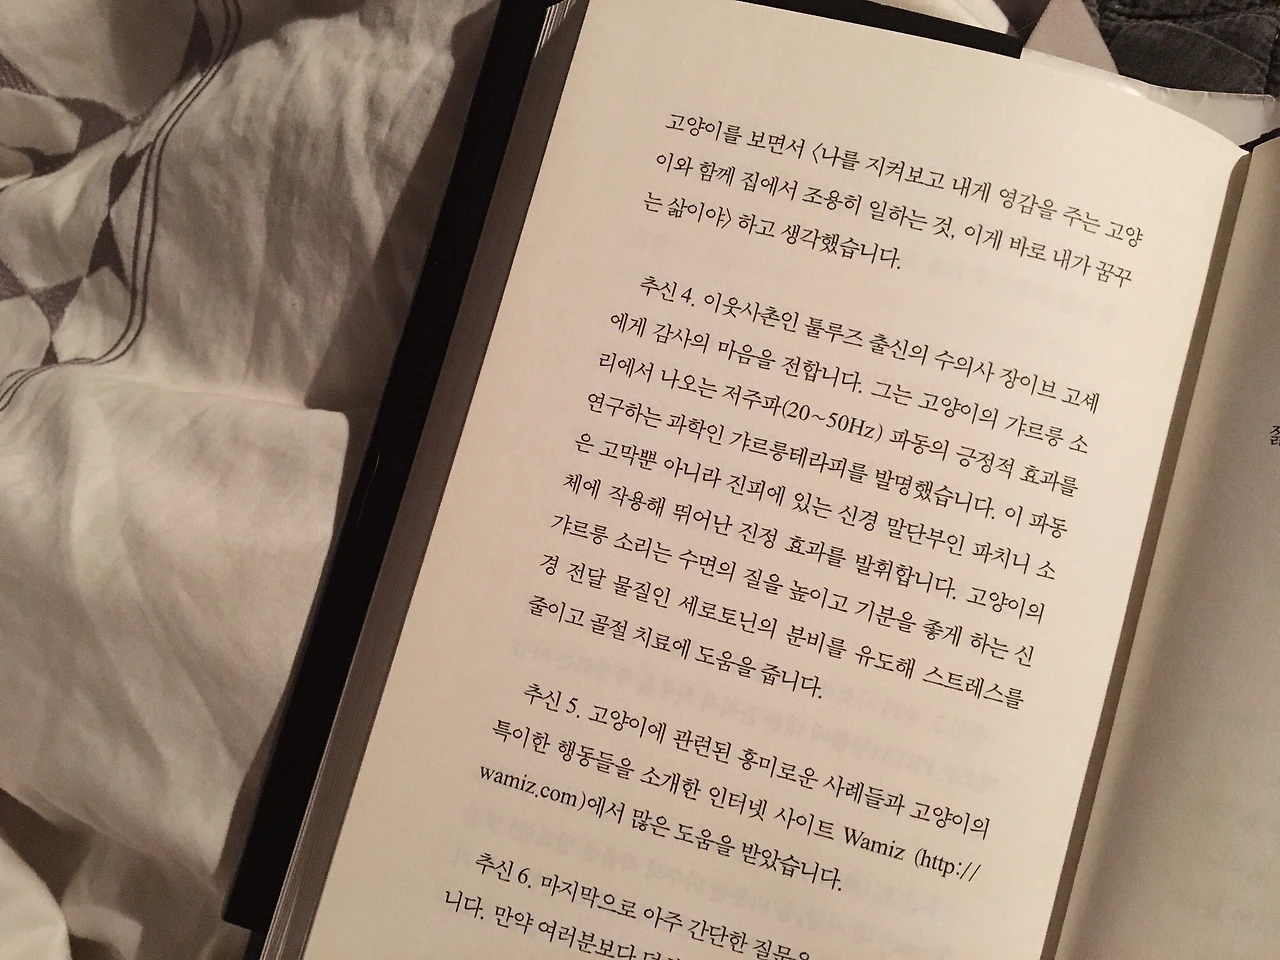 고양이를 보면서 〈나를 지켜보고 내게 영감을 주는 고양
이와 함께 집에서 조용히 일하는 것, 이게 바로 내가 꿈꾸
는 삶이야〉 하고 생각했습니다.
추신 4. 이웃사촌인 툴루즈 출신의 수의사 장이브 고셰
에게 감사의 마음을 전합니다. 그는 고양이의 갸르릉 소
리에서 나오는 저주파(20~50Hz) 파동의 긍정적 효과를
연구하는 과학인 갸르릉테라피를 발명했습니다. 이 파동
은 고막뿐 아니라 진피에 있는 신경 말단부인 파치니 소
체에 작용해 뛰어난 진정 효과를 발휘합니다. 고양이의
갸르릉 소리는 수면의 질을 높이고 기분을 좋게 하는 신
경 전달 물질인 세로토닌의 분비를 유도해 스트레스를
줄이고 골절 치료에 도움을 줍니다.
추신 5. 고양이에 관련된 흥미로운 사례들과 고양이의
특이한 행동들을 소개한 인터넷 사이트 Wamiz (http://
wamiz.com)에서 많은 도움을 받았습니다.
추신 6. 마지막으로 아주 간단한 질문
니다. 만약 여러분보다